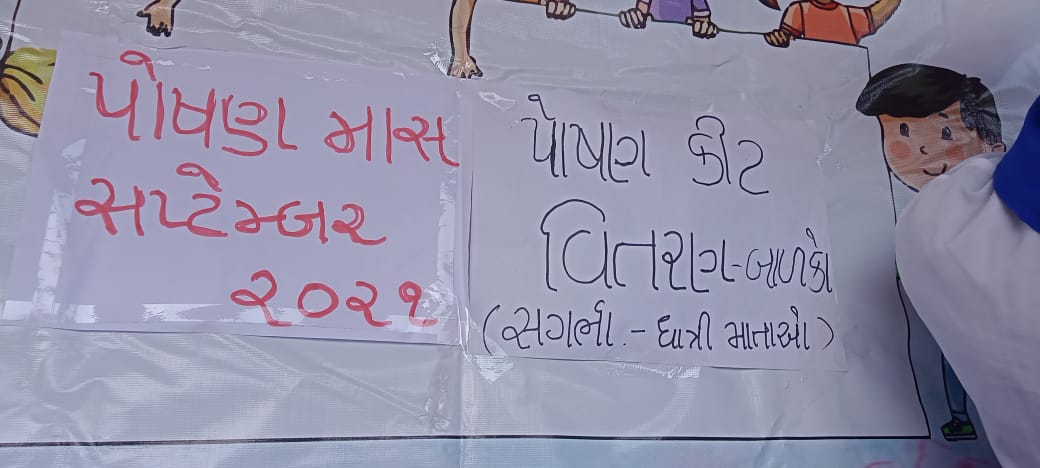 પોષણ માસ
સપ્ટેમ્બર
૨૦૨૧
પોષણ કીટ
વિતરણ-બાળકો
(સગર્ભા.- ધાત્રી માતાઓ)